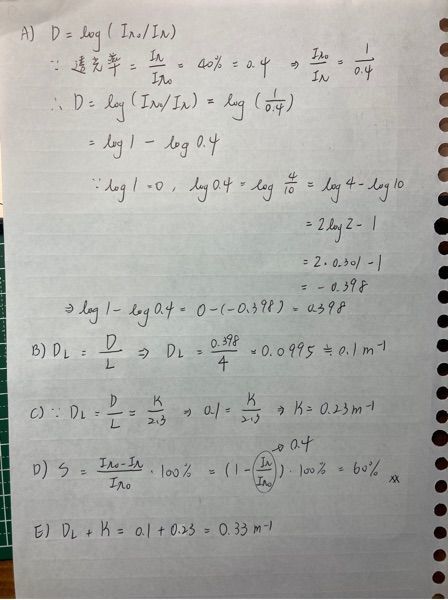 A) D = log ( Iro/Ir )
∵ 透光率 = Ir/Iro = 40% = 0.4 ⇒ Iro/Ir = 1/0.4
∴ D = log ( Iro/Ir ) = log ( 1/0.4 )
= log 1 - log 0.4
∵ log 1 = 0 , log 0.4 = log 4/10 = log 4 - log 10
= 2 log 2 - 1
= 2 · 0.301 - 1
= - 0.398
⇒ log 1 - log 0.4 = 0 - (-0.398) = 0.398
B) DL = D/L ⇒ DL = 0.398/4 = 0.0995 ≒ 0.1 m⁻¹
C) ∵ DL = D/L = K/2.3 ⇒ 0.1 = K/2.3 ⇒ K = 0.23 m⁻¹
→ 0.4
D) S = Iro - Ir/Iro · 100% = ( 1 - Ir/Iro ) · 100% = 60%
E) DL + K = 0.1 + 0.23 = 0.33 m⁻¹